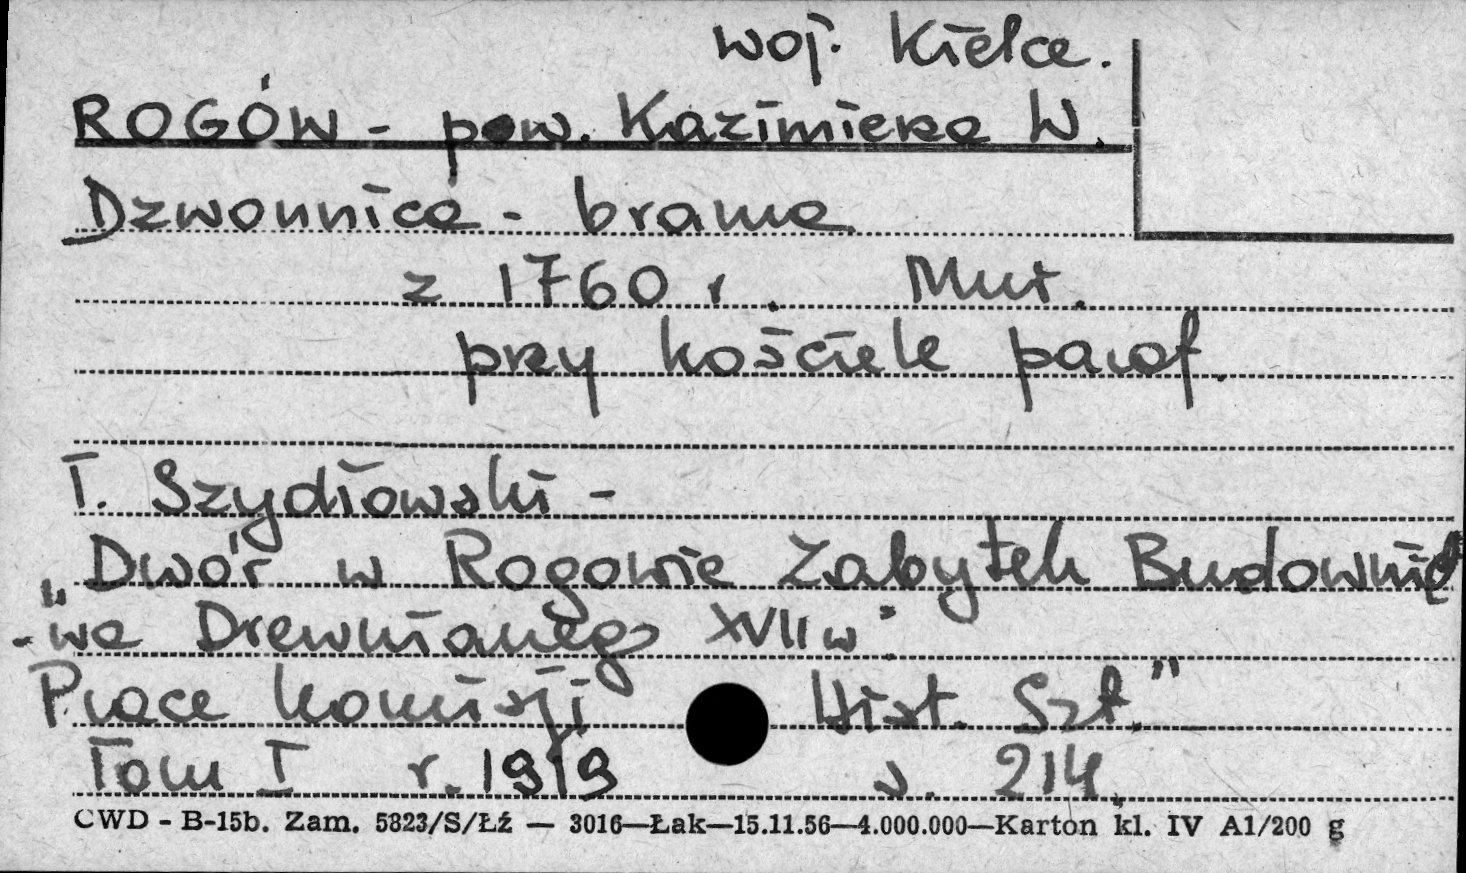 woj. Kielce.
ROGÓW - pow. Kazimierza W.
Dzwonnica - brama
z 1760 r. Mur.
przy kościele paraf.
T. Szydłowski -
„Dwór w Rogowie Zabytek Budownic
-wa Drewnianego XVII w".
Prace Komisji Hist. Szt."
Tom I r. 1919 s. 214.
CWD - B-15b. Zam. 5823/S/Łź — 3016—Łak—15.11.56—4.000.000—Karton kl. IV A1/200 g